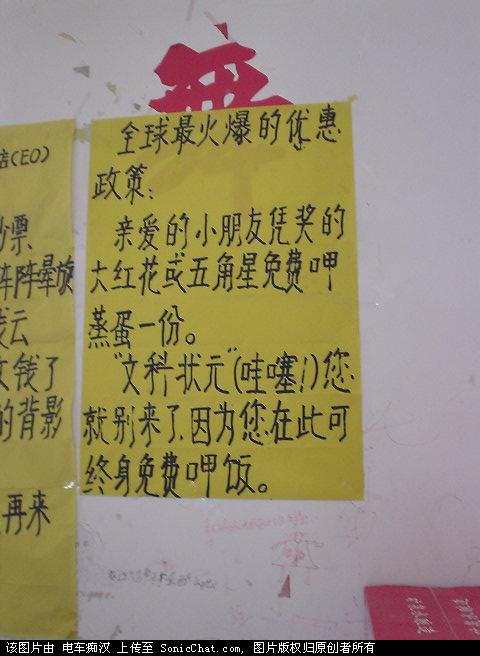 店(EO)
钞票
阵阵晕旋
钱云
文钱了
的背影
再来
全球最火爆的优惠
政策：
亲爱的小朋友凭奖的
大红花或五角星免费呷
蒸蛋一份。
“文科状元”(哇噻!)您
就别来了.因为您在此可
终身免费呷饭。
该图片由 电车痴汉 上传至 SonicChat.com, 图片版权归原创者所有